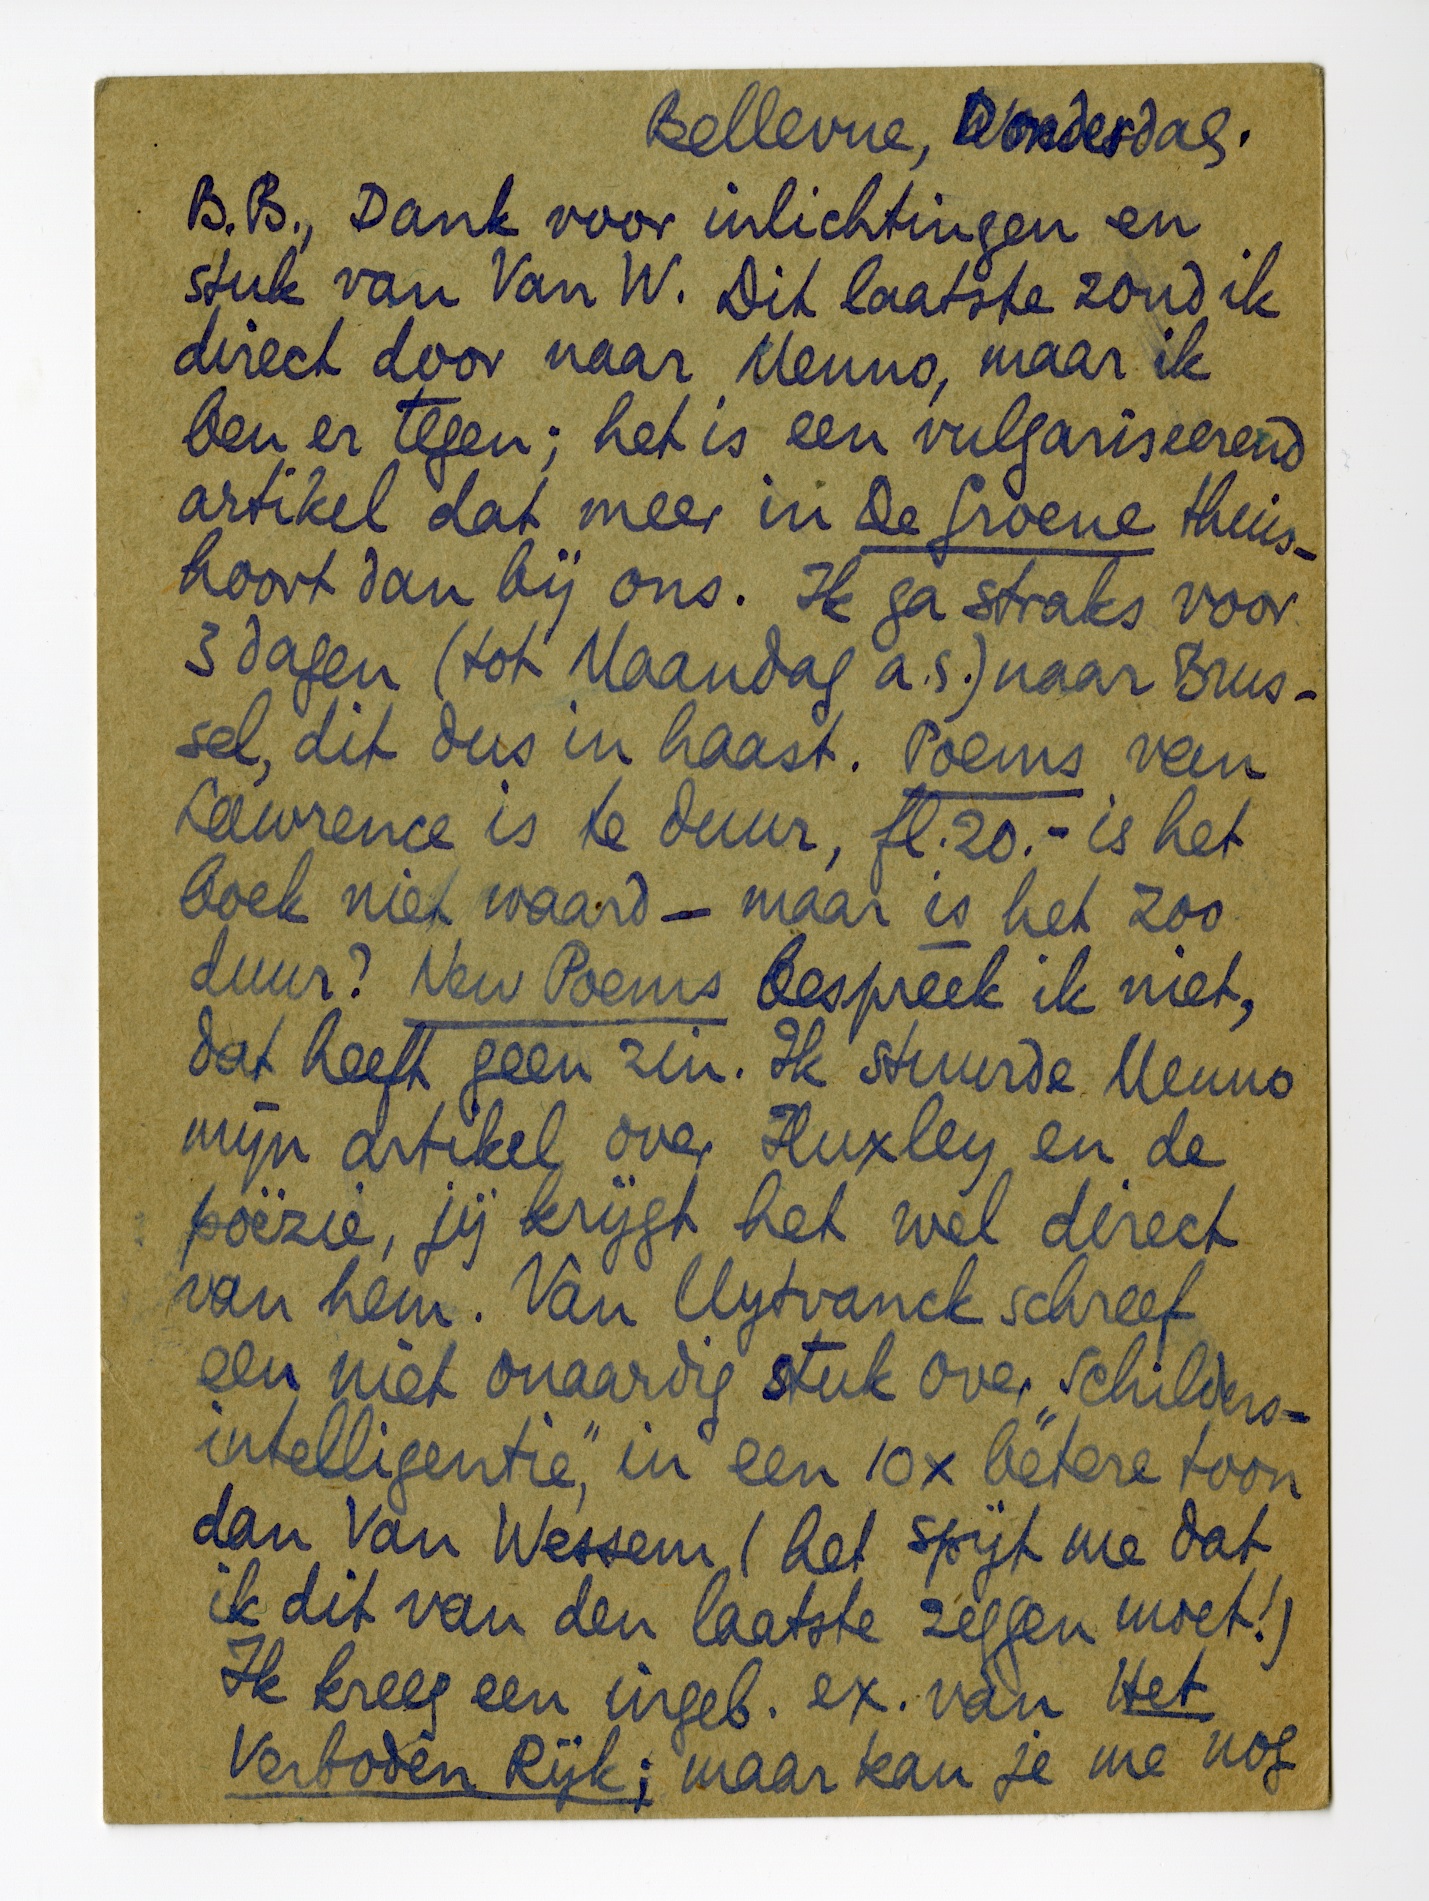 Bellevue, Donderdag.
B.B., Dank voor inlichtingen en
stuk van Van W. Dit laatste zond ik
direct door naar Menno, maar ik
ben er tegen; het is een vulgariseerend
artikel dat meer in De Groene thuis-
hoort dan bij ons. Ik ga straks voor
3 dagen (tot Maandag a.s.) naar Brus-
sel, dit dus in haast. Poems van
Lawrence is te duur, fl. 20.- is het
boek niet waard – maar is het zoo
duur? New Poems bespreek ik niet,
dat heeft geen zin. Ik stuurde Menno
mijn artikel over Huxley en de
poëzie, jij krijgt het wel direct
van hem. Van Uytvanck schreef
een niet onaardig stuk over „schilders-
intelligentie", in een 10x betere toon
dan Van Wessem (het spijt me dat
ik dit van den laatste zeggen moet!)
Ik kreeg een ingeb. ex. van Het
Verboden Rijk; maar kan je me nog